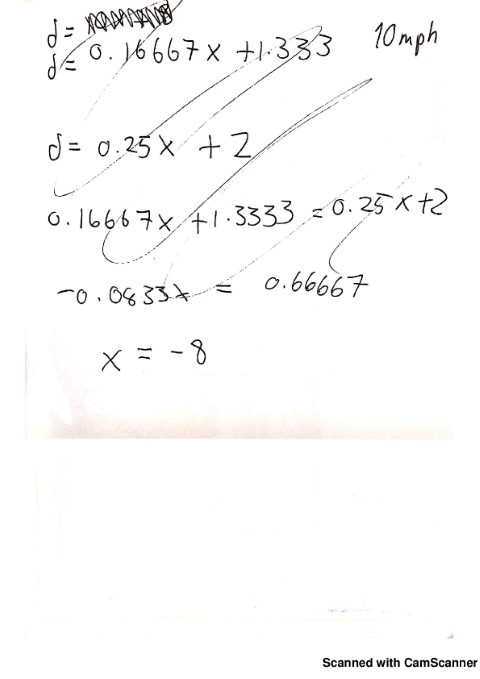 d =
d = 0.16667x + 1.333 10mph
d = 0.25x + 2
0.16667x + 1.3333 = 0.25x + 2
-0.0833x = 0.66667
x = -8
Scanned with CamScanner